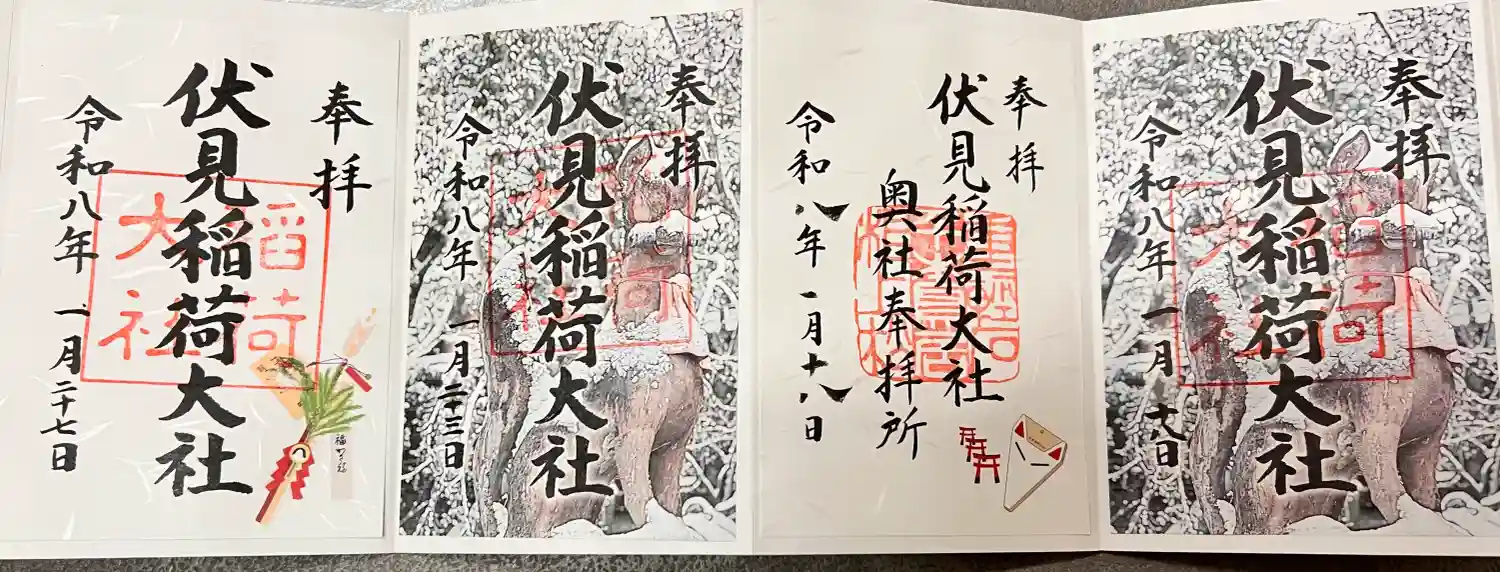 奉拝
伏見稲荷大社
稲荷
大社
令和八年 一月二十七日
奉拝
伏見稲荷大社
令和八年 一月二十三日
奉拝
伏見稲荷大社
奥社奉拝所
令和八年 一月十八日
奉拝
伏見稲荷大社
令和八年 一月十八日